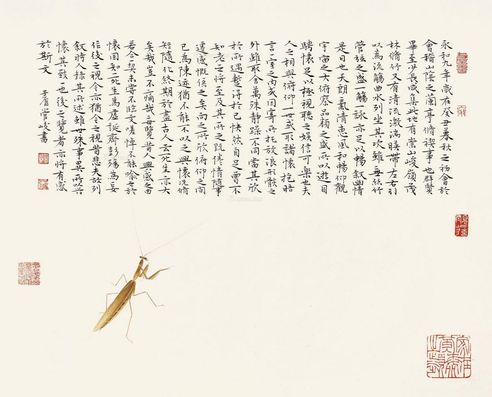 永和九年歲在癸丑暮春之初會於
會稽山陰之蘭亭脩禊事也群賢
畢至少長咸集此地有崇山峻嶺茂
林脩竹又有清流激湍暎帶左右引
以為流觴曲水列坐其次雖無絲竹
管弦之盛一觴一詠亦足以暢敘幽情
是日也天朗氣清惠風和暢仰觀
宇宙之大俯察品類之盛所以遊目
騁懷足以極視聽之娛信可樂也夫
人之相與俯仰一世或取諸懷抱晤
言一室之內或因寄所託放浪形骸之
外雖取舍萬殊靜躁不同當其欣
於所遇暫得於己快然自足曾不
知老之將至及其所之既惓情隨事
遷感慨係之矣向之所欣俯仰之間
已為陳迹猶不能不以之興懷況脩
短隨化終期於盡古人云死生亦大
矣豈不痛哉每覽昔人興感之由
若合一契未嘗不臨文嗟悼不能喻之於
懷固知一死生為虛誕齊彭殤為妄
作後之視今亦猶今之視昔悲夫故列
敘時人錄其所述雖世殊事異所以興
懷其致一也後之覽者亦將有感
於斯文